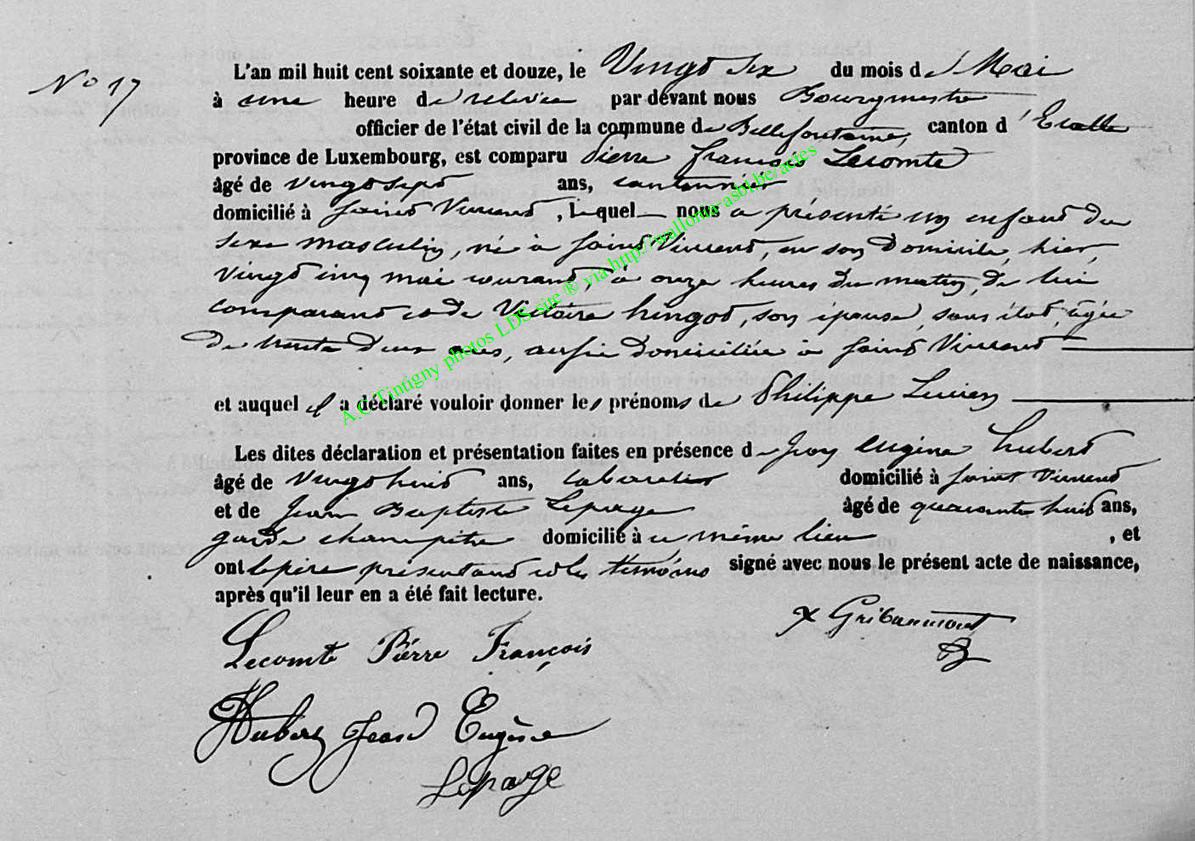 N° 17
L'an mil huit cent soixante et douze, le Vingt six du mois de Mai
à une heure de relevée par devant nous Bourgmestre
officier de l'état civil de la commune de Bellefontaine, canton d'Etalle
province de Luxembourg, est comparu Pierre françois Lecomte
âgé de vingt sept ans, cantonnier
domicilié à saint Vincent, lequel nous a présenté un enfant du
sexe masculin, né à saint Vincent, en son domicile, hier,
vingt cinq mai courant, à onze heures du matin, de lui
comparant et de Victoire hingot, son épouse, sans état, âgée
de trente deux ans, aussi domiciliée à saint Vincent
et auquel il a déclaré vouloir donner les prénoms de Philippe Lucien
Les dites déclaration et présentation faites en présence de Jean Eugène hubert
âgé de vingt huit ans, cabaretier domicilié à saint Vincent
et de Jean Baptiste Lepage âgé de quarante huit ans,
garde champêtre domicilié à ce même lieu, et
ont le père présentant et les témoins signé avec nous le présent acte de naissance,
après qu'il leur en a été fait lecture.
x Gribaumont
Lecomte Pierre François
Hubert Jean Eugène
Lepage
A.C. Tintigny photos LDS site ® via http://wallonia-asbl.be/actes